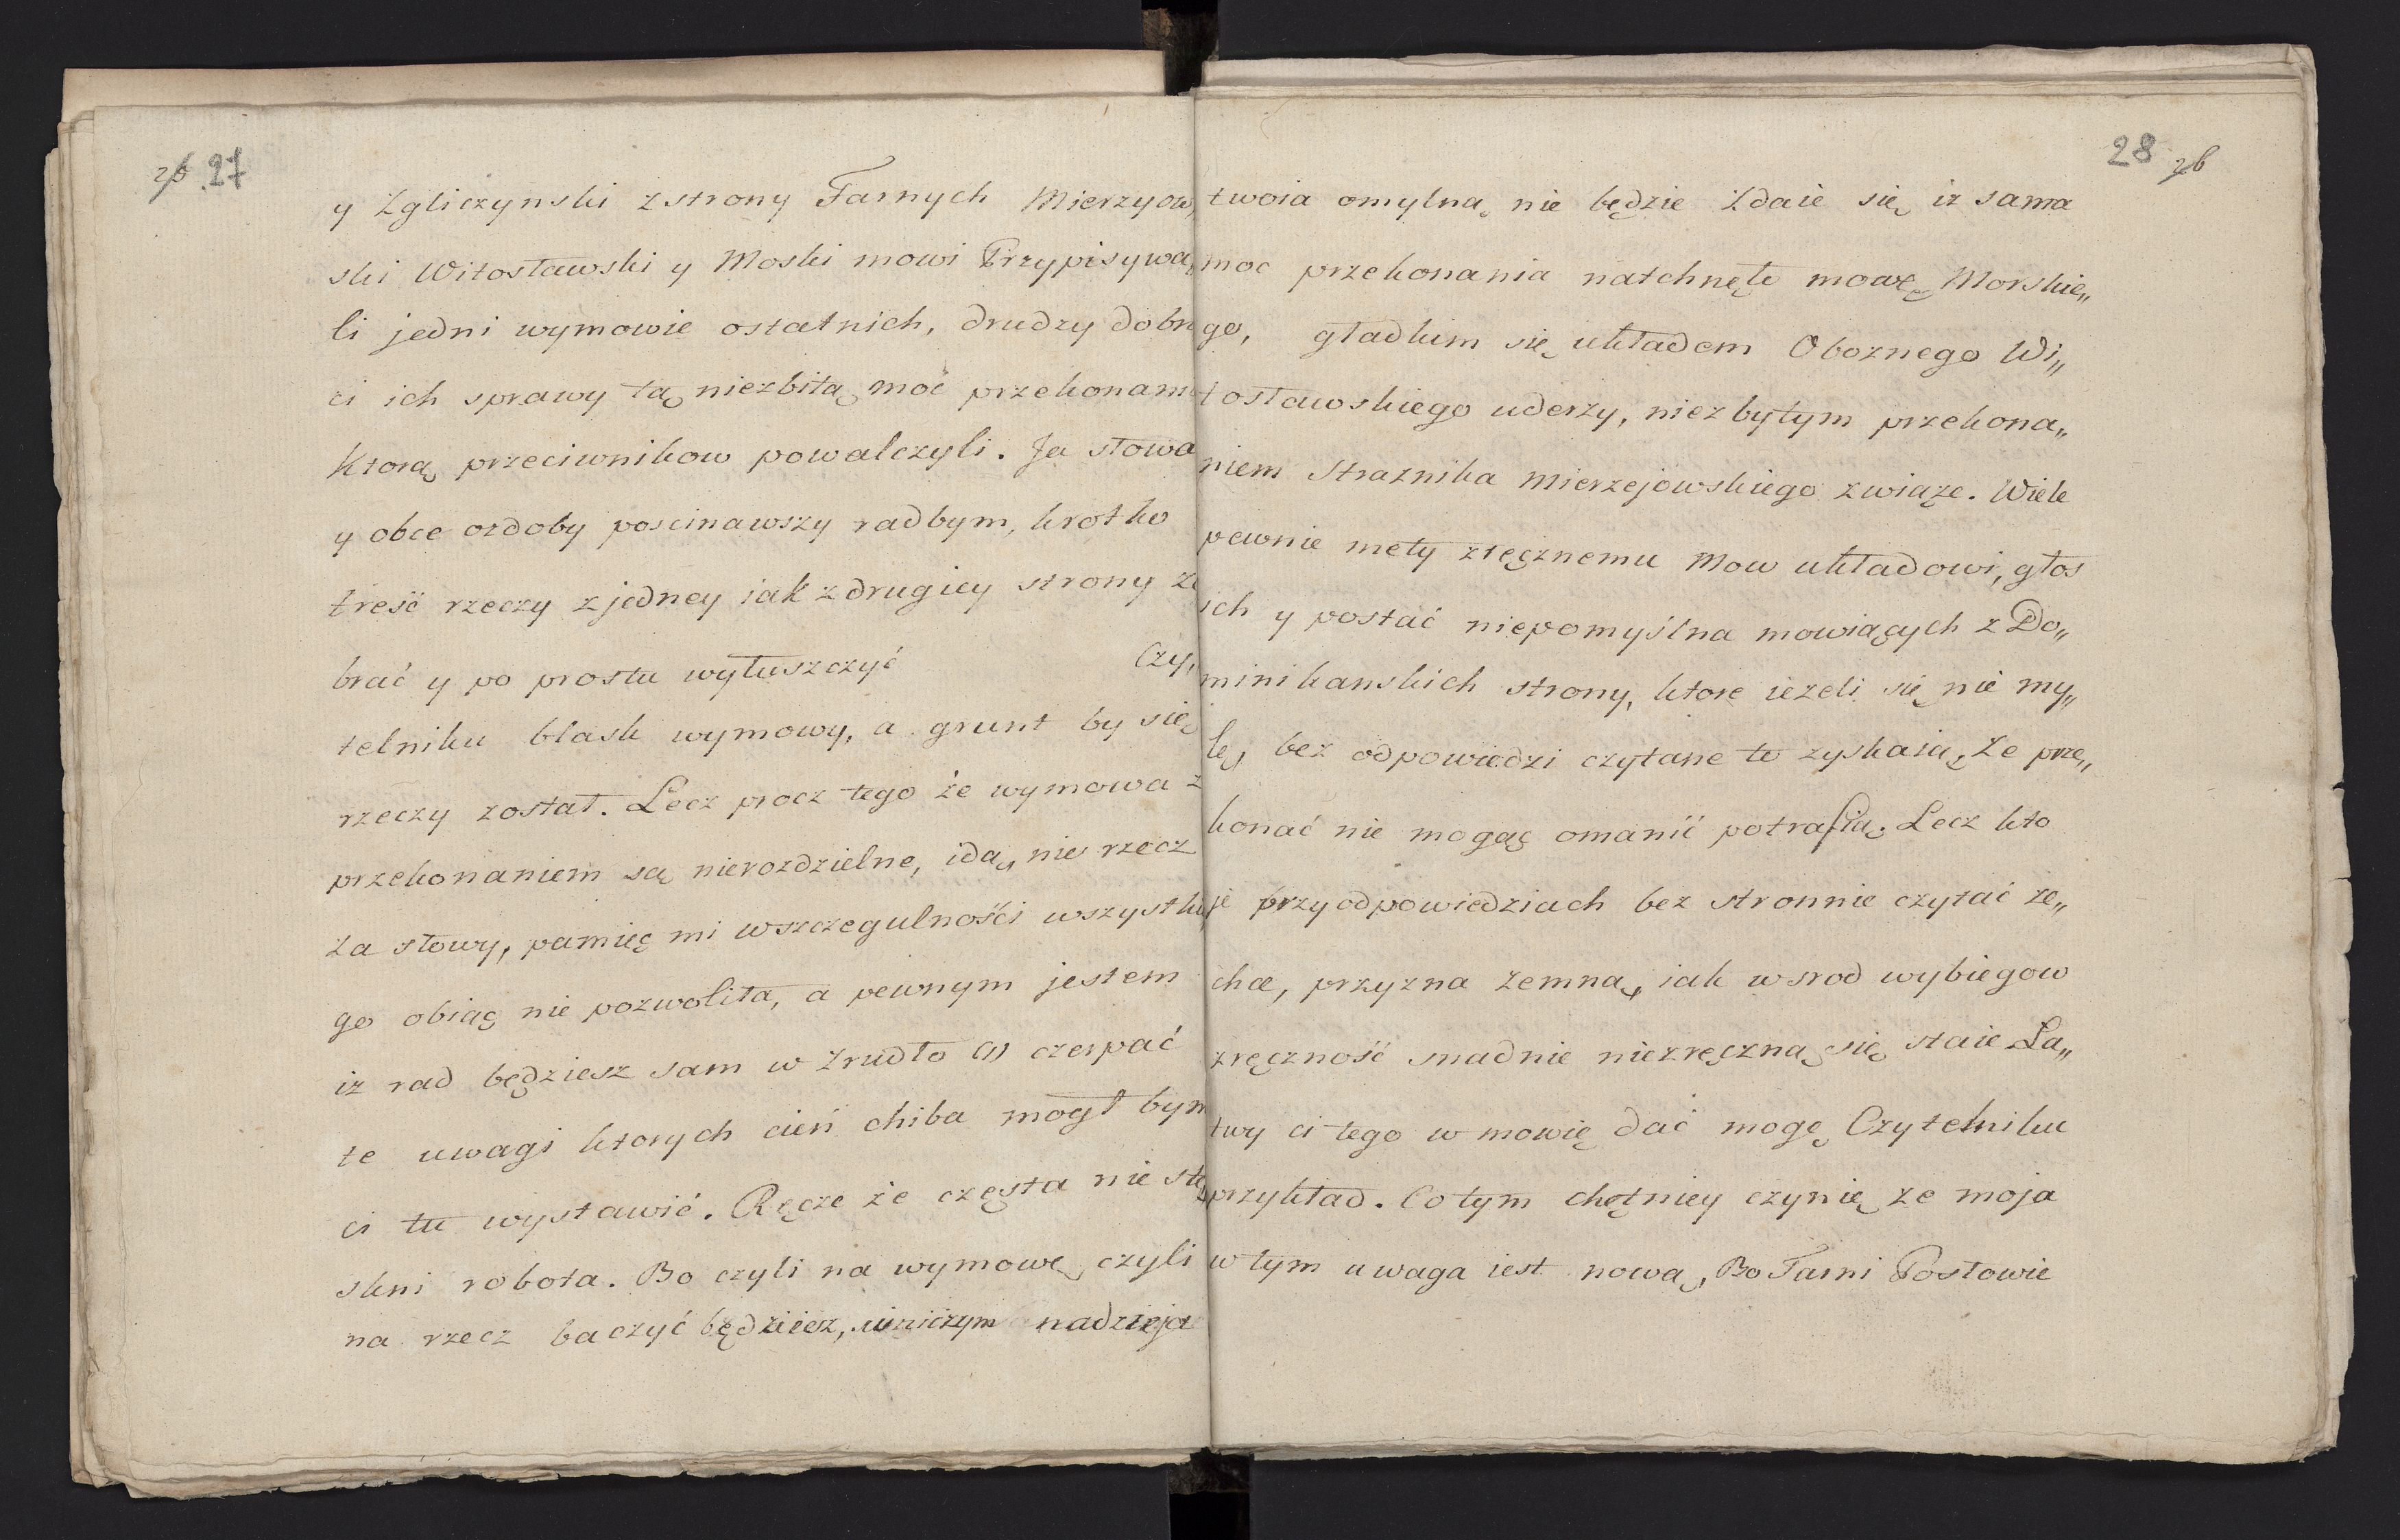 27
y Zgliczynski z strony Farnych Mierzyow,
ski Witosławski y Moski mowi Przypisywa,
li jedni wymowie ostatnich, drudzy dobr
ci ich sprawy tą niezbitą moć przekonani
Ktorą przeciwnikow powalczyli. Ja słowa
y obce ozdoby poscinawszy radbym, krotko
treść rzeczy z jedney iak z drugiey strony ze
brać y po prostu wyłuszczyć Czy,
telniku blask wymowy, a grunt by się
rzeczy został. Lecz procz tego że wymowa z
przekonaniem są nierozdzielne, idą, nie rzecz
za słowy, pamięc mi wszczegulności wszystki
go obiąc nie pozwoliła, a pewnym jestem
iz rad będziesz sam w zrudło (1) czerpać
te uwagi ktorych cień chiba mogł bym
ci tu wystawić. Ręcze że częsta nie stę
skni robota. Bo czyli na wymowę czyli
na rzecz baczyć będziesz, w niczym nadzieja
28 26
twoia omylną nie będzie Zdaie się iz sama
moc przekonania natchnęło mowę Morskie„
go, gładkim się układem Oboznego Wi„
tosławskiego uderzy, niezbytym przekona„
niem Straznika Mierzejowskiego związe. Wiele
pewnie mety zręcznemu Mow układowi, głos
ich y postać niepomyślna mowiących z Do„
minikanskich strony, ktore ieżeli się nie my„
lę, bez odpowiedzi czytane to zyskaią, że prze„
konać nie mogąc omanić potrafią. Lecz kto
je przy odpowiedziach bez stronnie czytać ze„
chce, przyzna zemną, iak wsrod wybiegow
zręczność snadnie niezręczną się staie La„
twy ci tego w mowię dać mogę Czytelniku
przykład. Co tym chętniey czynię ze moja
w tym uwaga iest nową, Bo Farni Posłowie